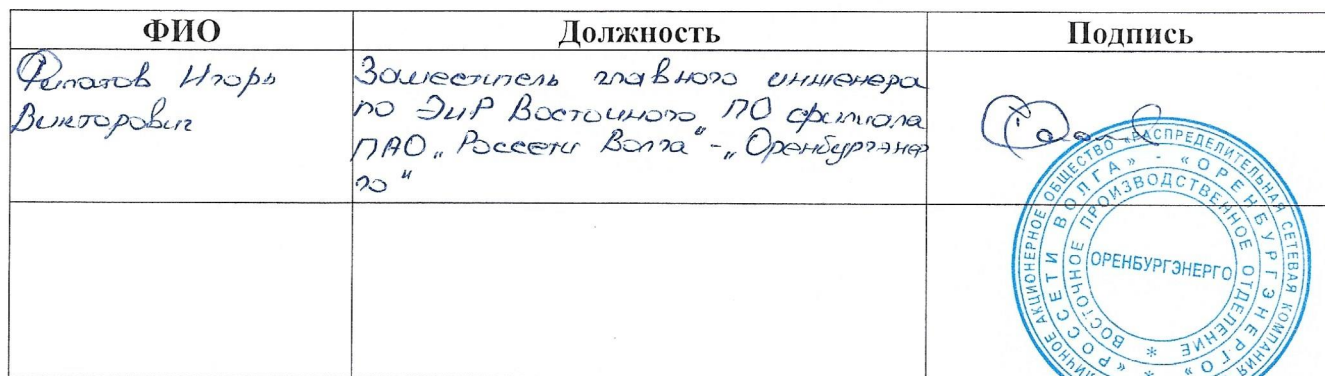 ФИО Должность Подпись
Филатов Игорь
Викторович
Заместитель главного инженера
по ЭиР Восточного ПО филиала
ПАО „Россети Волга" - „Оренбургэнер
го"
АКЦИОНЕРНОЕ ОБЩЕСТВО «РАСПРЕДЕЛИТЕЛЬНАЯ СЕТЕВАЯ КОМПАНИЯ
«РОССЕТИ ВОЛГА» - «ОРЕНБУРГЭНЕРГО»
ВОСТОЧНОЕ ПРОИЗВОДСТВЕННОЕ ОТДЕЛЕНИЕ *
ОРЕНБУРГЭНЕРГО